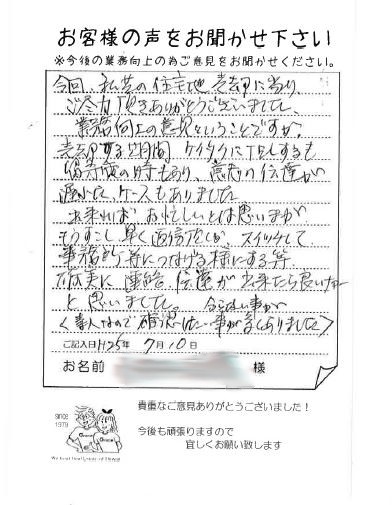 お客様の声をお聞かせ下さい
※今後の業務向上の為ご意見をお聞かせください。
今回、私共の住宅地売却に当り、
ご尽力頂きありがとうございました。
業務向上の意見ということですが、
売却する期間、ケイタイにTELするも
留守電の時もあり、意志の伝達が
遅れたケースもありました。
出来れば お忙しいとは思いますが
もうすこし早く返信をしか、スイッチして
事務所等につなげる様にする等
確実に連絡、伝達が出来たら良いなー
と思いました。 分らない事が
〈素人なので確認したい事が多くありました〉
ご記入日 H25年 7月10日
お名前 様
since
1979
貴重なご意見ありがとうございました！
今後も頑張りますので
宜しくお願い致します